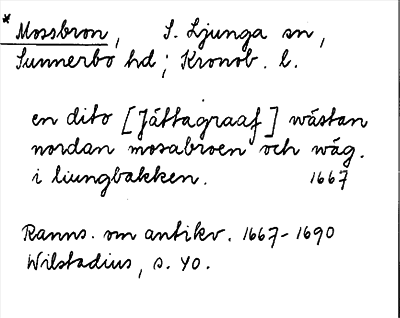 * Mossbron, S. Ljunga sn,
Sunnerbo hd; Kronob. l.
en dito [Jättagraaf] wästan
nordan mosabroen och wäg.
i liungbakken. 1667
Ranns. om antikv. 1667-1690
Wilstadius, s. 40.